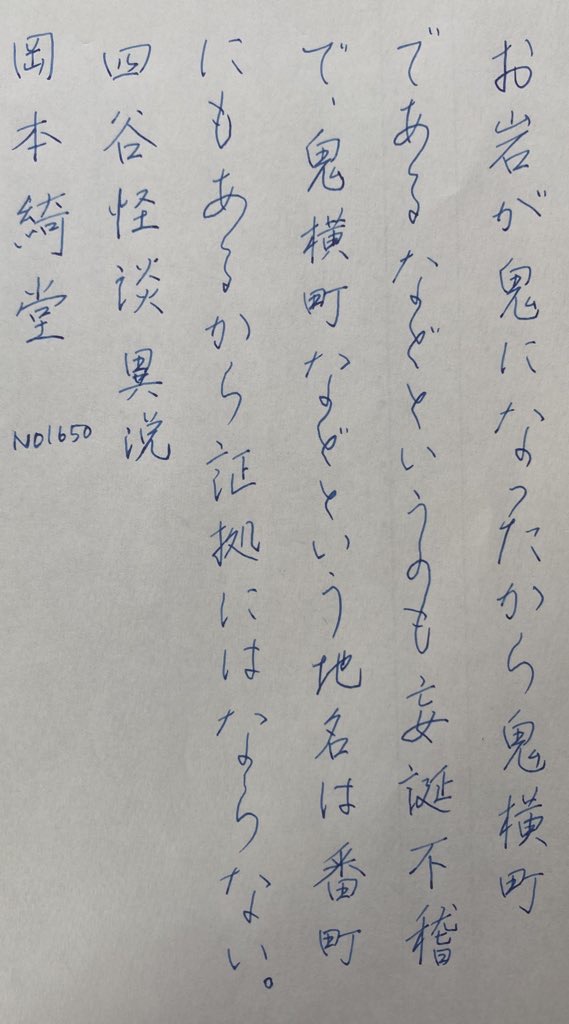 お岩が鬼になったから鬼横町
であるなどというのも妄誕不稽
で、鬼横町などという地名は番町
にもあるから証拠にはならない。
四谷怪談異説
岡本綺堂 NO1650